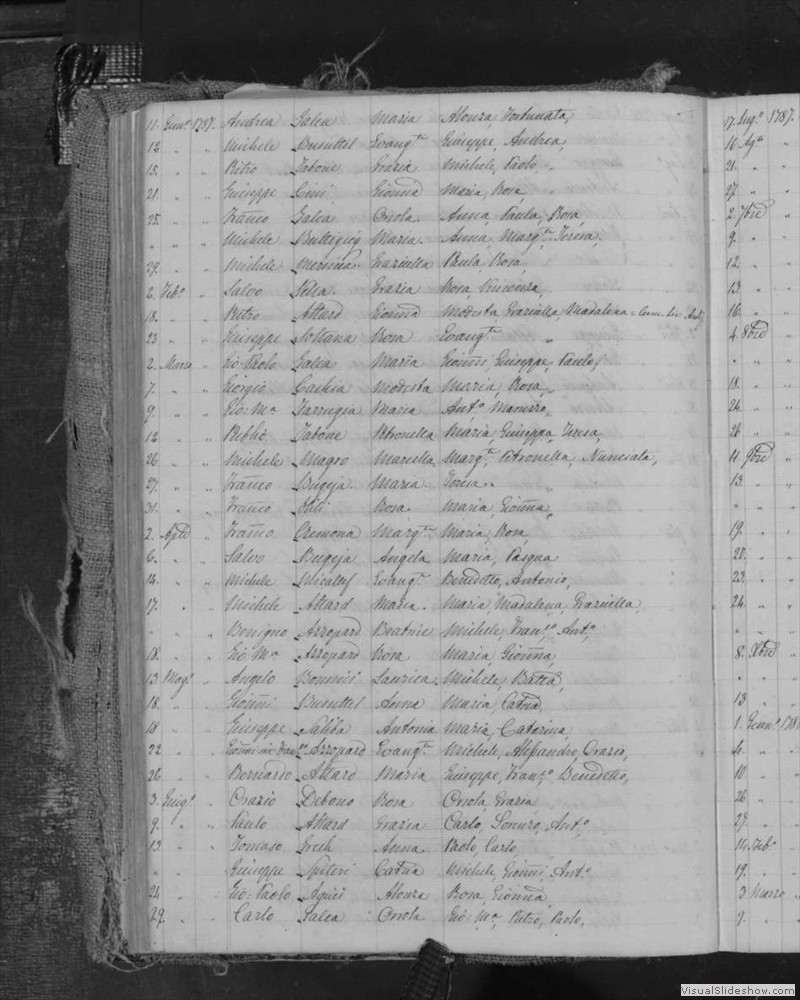 11. Genn.º 1787. Andrea Galea Maria Alonza, Fortunata,
12 „ „ Michele Brunttel Evang.ta Giuseppe, Andrea,
15. „ „ Pietro Tabone Grazia Michele, Paolo
21. „ „ Giuseppe Cini Gionna Maria, Rosa,
25. „ „ Franco Galea Orsola. Anna, Paula, Rosa,
„ „ „ Michele Buttigieg Maria. Anna, Marg.ta Teresa,
29. „ „ Michele Graziella Paula, Rosa,
2. Feb.º „ Salvo Vella Grazia Rosa, Vincenza,
18. „ „ Pietro Attard Gionna Modesta, Graziella, Madalena
23 „ „ Giuseppe Sottana Rosa Evang.ta „
2. Marzo „ Gio: Paolo Galea Maria Gionni, Giuseppe, Paulo,
7. „ „ Giorgio Cachia Modesta Maria, Rosa,
9. „ „ Gio: M.a Farrugia Maria Ant.º
12 „ „ Publio Tabone Petronella Maria, Giuseppa, Teresa,
26 „ „ Michele Magro Marcella Marg.ta Petronella, Nunciata,
27. „ „ Franco Bugeja Maria.
31. „ „ Franco Rosa Maria, Gionna,
2. Aple „ Franco Cremona Marg.ta Maria, Rosa,
6. „ „ Salvo Bugeja Angela Maria, Pasqua
14. „ „ Michele Micallef Evang.ta Benedetto, Antonio,
17. „ „ Michele Attard Maria. Maria, Madalena, Graziella,
„ „ „ Benigno Azzopard Beatrice Michele, Fran.co Ant.º
18. „ „ Gio: M.a Azzopard Rosa Maria, Gionna,
13. Mag.º „ Angelo Bonnici Laurica. Michele, Batta,
18. „ „ Gionni Brunttel Anna Maria, Catna,
18 „ „ Giuseppe Saliba Antonia Maria, Catarina,
22 „ „ Azzopard Evang.ta Michele, Alessandro, Orazio,
26 „ „ Bernardo Attard Maria Giuseppe, Fran.co Benedetto,
3. Giug.º „ Orazio Debono Rosa Orsola, Grazia
9. „ „ Paulo Attard Grazia Carlo, Ant.º
13 „ „ Tomaso Anna Paolo, Carlo
„ „ „ Giuseppe Spiteri Catna Michele, Gionni, Ant.º
24 „ „ Gio: Paolo Agius Alonza Rosa, Gionna,
29. „ „ Carlo Galea Orsola Gio: M.a Pietro, Paolo,
17. Lug.º 1787.
16. Ag.º
21. „
27. „
2. 7bre
9. „
12. „
13 „
16. „
4. 8bre
„ „
18. „
24. „
26 „
11. 9bre
13. „
„ „
19. „
20. „
23. „
24. „
„ „
8. Xbre
„ „
13 „
1. Genn.º 178
4. „
10. „
26 „
27. „
14. Feb.º
19. „
3 Marzo
9. „
VisualSlideshow.com